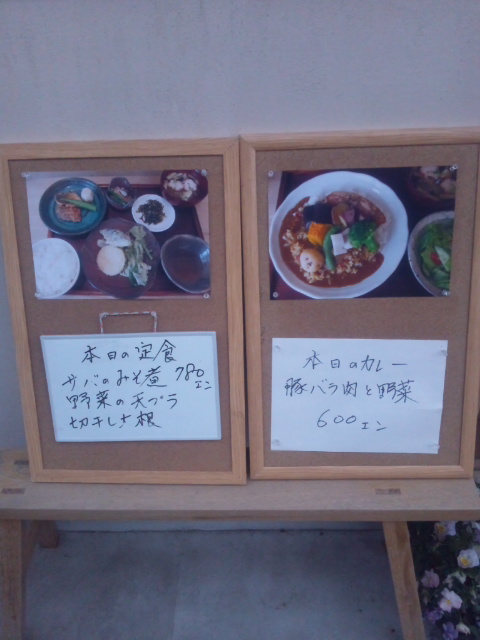 本日の定食
サバのみそ煮 780エン
野菜の天プラ
切干し大根
本日のカレー
豚バラ肉と野菜
600エン